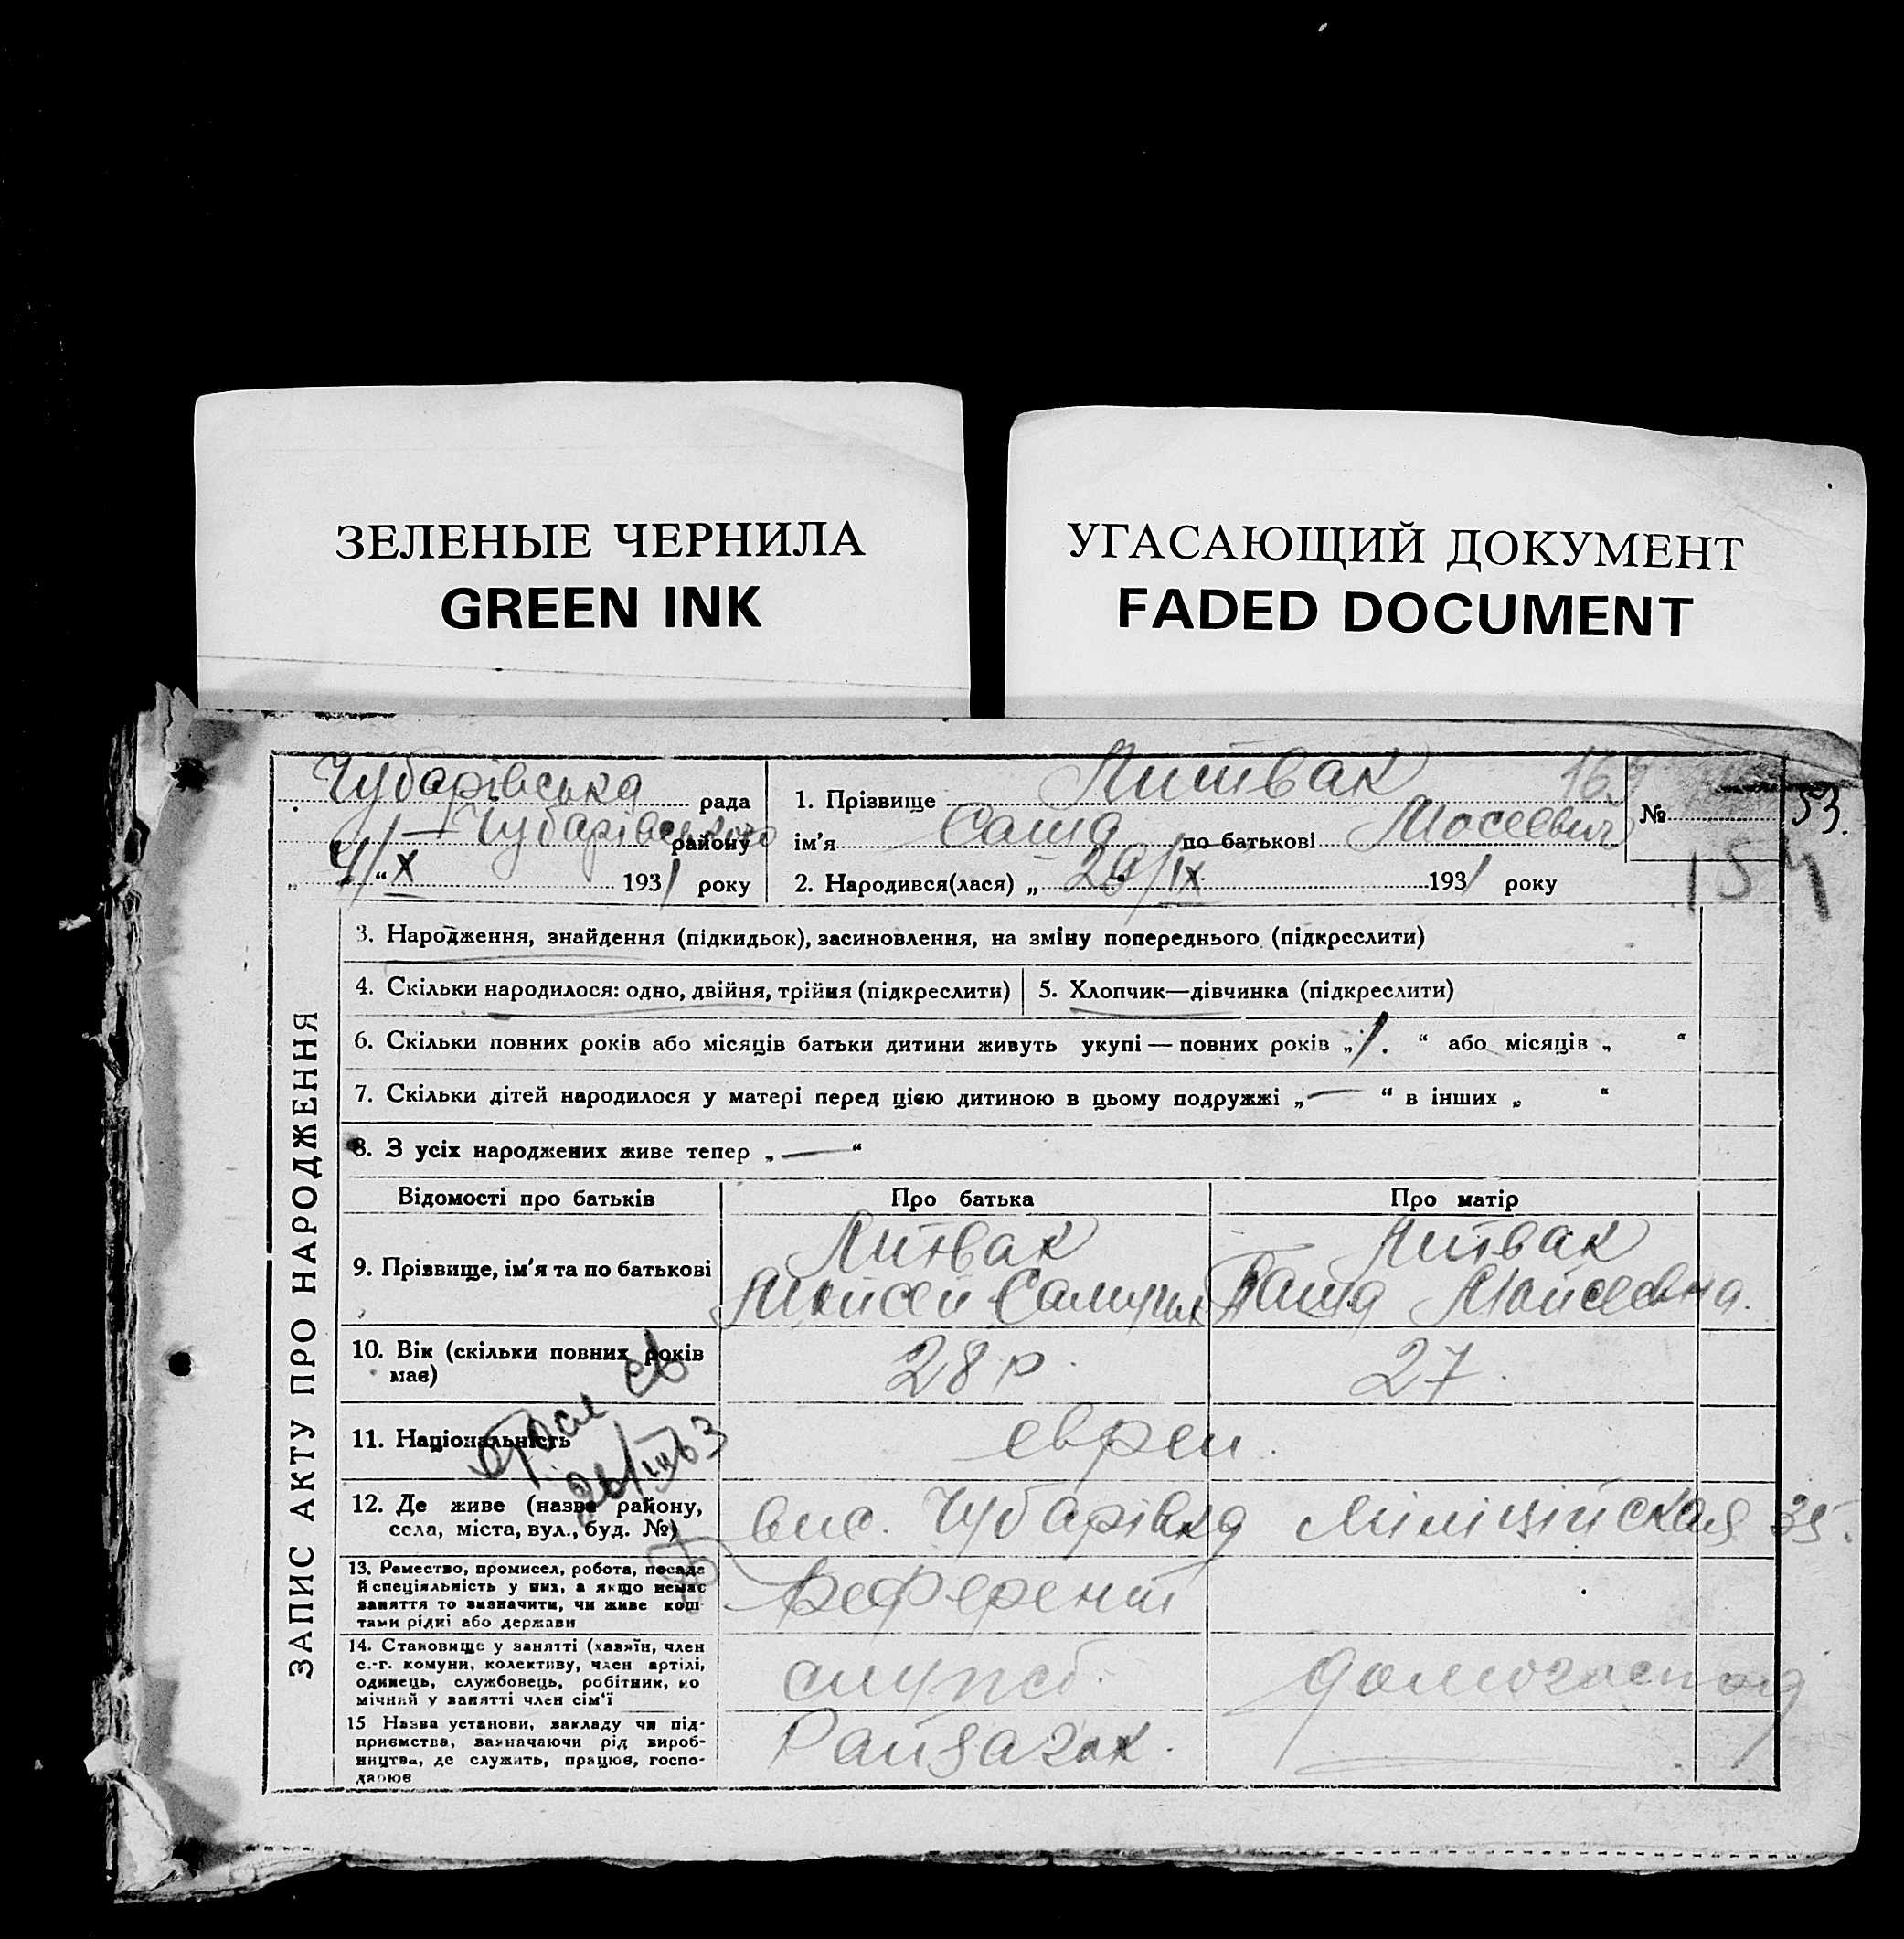 ЗЕЛЕНЫЕ ЧЕРНИЛА
GREEN INK
УГАСАЮЩИЙ ДОКУМЕНТ
FADED DOCUMENT
Чубарівська рада
Чубарівського району
4/X 1931 року
1. Прізвище Литвак
ім'я Саша по батькові Мосеевич
2. Народився(лася) „ 29/IX 1931 року
№ 53.
154
ЗАПИС АКТУ ПРО НАРОДЖЕННЯ
3. Народження, знайдення (підкидьок), засиновлення, на зміну попереднього (підкреслити)
4. Скільки народилося: одно, двійня, трійня (підкреслити)
5. Хлопчик—дівчинка (підкреслити)
6. Скільки повних років або місяців батьки дитини живуть укупі — повних років „ 1. “ або місяців „ “
7. Скільки дітей народилося у матері перед цією дитиною в цьому подружжі „ — “ в інших „ “
8. З усіх народжених живе тепер „ — “
Відомості про батьків Про батька Про матір
9. Прізвище, ім'я та по батькові
Литвак
Мойсей
Литвак
Мойсеевна.
10. Вік (скільки повних років має)
28 р.
27.
11. Національність
евреи.
26/III 63
12. Де живе (назва району,
села, міста, вул., буд. №)
вис. Чубарівка Міліційская 35.
13. Ремество, промисел, робота, посада
й спеціяльність у них, а якщо немає
заняття то визначити, чи живе кош
тами рідні або держави
Референт
14. Становище у занятті (хазяїн, член
с.-г. комуни, колективу, член артілі,
одинець, службовець, робітник, по
мічний у занятті член сім'ї
служб.
домогоспод
15 Назва установи, закладу чи під-
приємства, зазначаючи рід вироб-
ництва, де служить, працює, госпо-
дарює
Райзагот.